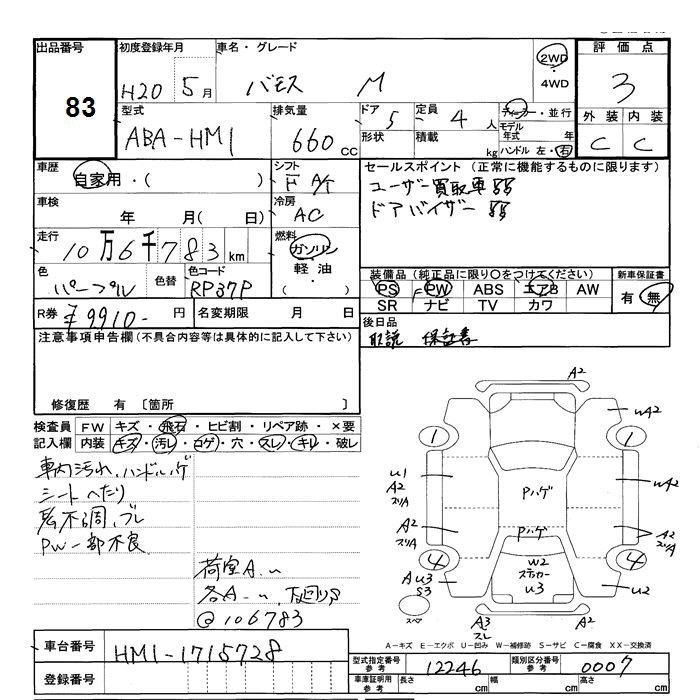 出品番号
83
初度登録年月
H20 5月
車名・グレード
バモス M
2WD
・
4WD
評価点
3
外装 内装
C C
型式
ABA-HM1
排気量
660 cc
ドア 5
定員 4 人
ディーラー・並行
形状
積載 kg
モデル年式 年
ハンドル 左・右
車歴
自家用・( )
シフト
F A/T
セールスポイント (正常に機能するものに限ります)
ユーザー買取車
ドアバイザー
車検
年 月( 日)
冷房
AC
走行
10万6千783 km
燃料
ガソリン
軽油・
( )
色
パープル
色替
色コード
RP37P
装備品 (純正品に限り〇をつけてください)
PS PW ABS エアB AW
SR ナビ TV カワ
新車保証書
有・無
R券 ¥9910- 円
名変期限 月 日
後日品
取説 保証書
注意事項申告欄(不具合内容等は具体的に記入して下さい)
修復歴 有 〔箇所 〕
検査員記入欄
FW キズ・飛石・ヒビ割・リペア跡・×要
内装 キズ・汚レ・コゲ・穴・スレ・キレ・破レ
車内汚れ、ハンドルハゲ
シートへたり
PW一部不良
荷室A.u
各A-u、下回りS
@106783
A2
uA2
1
1
u1
A2
スリA
Pハゲ
uA2
A2
スリA
Pハゲ
A2
スリA
4
4
Au3
S3
W2
ステッカー
u3
u2
スペア
A3
スレ
A2
A-キズ E-エクボ U-凹み W-補修跡 S-サビ C-腐食 XX-交換済
車台番号
HM1-1715728
登録番号
型式指定番号
参考
12246
類別区分番号
参考
0007
車庫証明用
参考
長さ cm
幅 cm
高さ cm